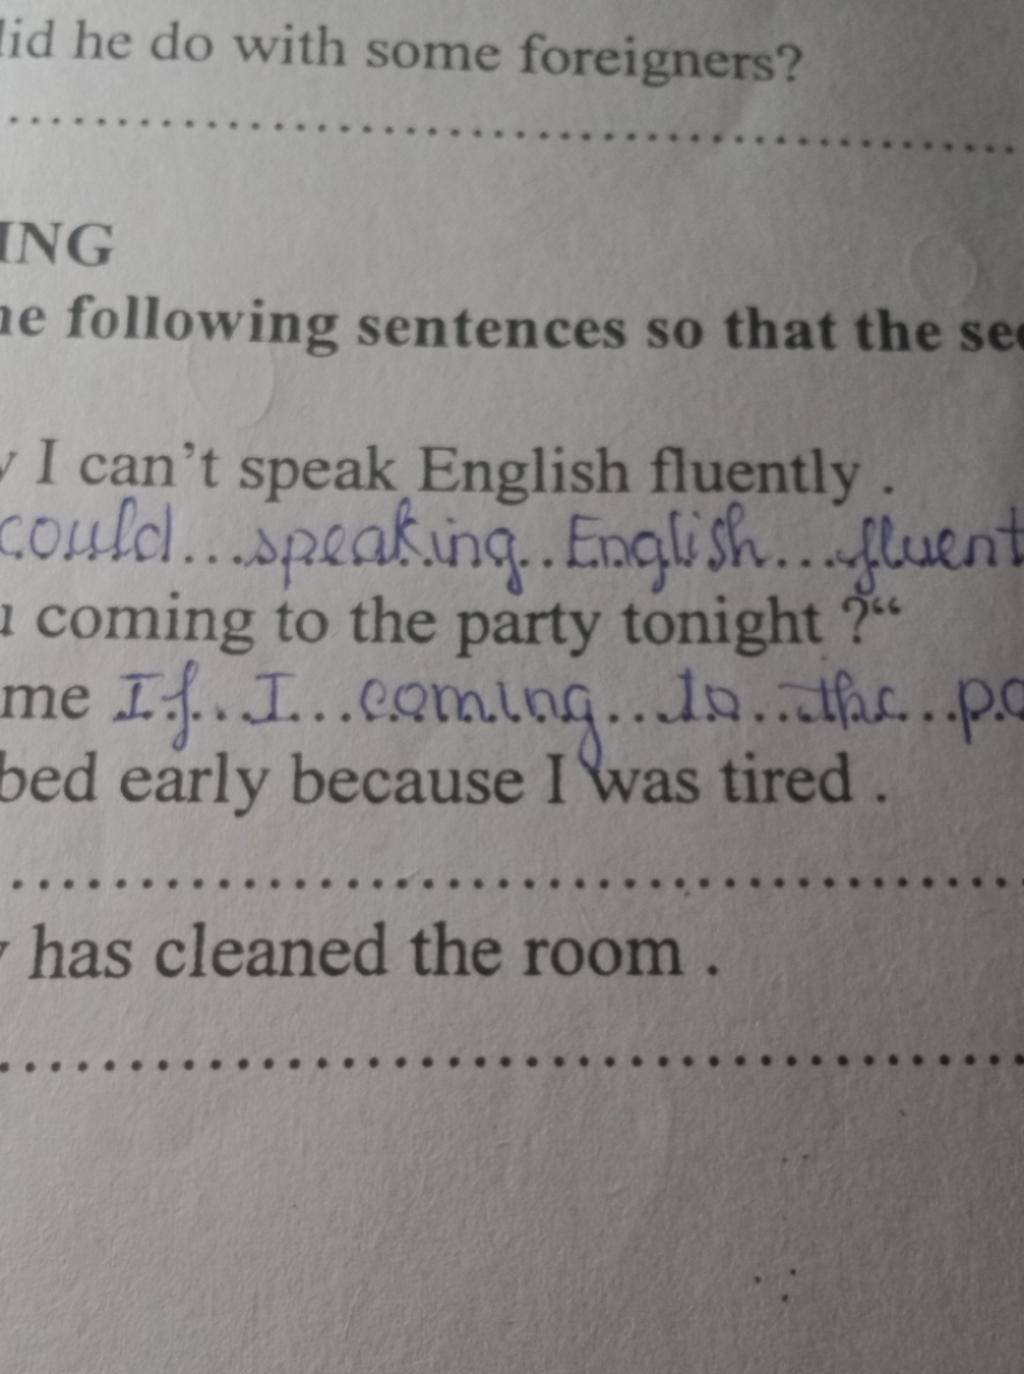 did he do with some foreigners?
ING
following sentences so that the
I can't speak English fluently .
could...speaking..English...fluent
coming to the party tonight ?“
me If..I...coming..to..the...
bed early because I was tired .
has cleaned the room .